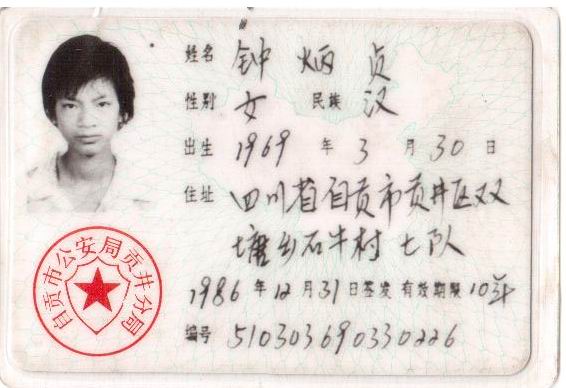 姓名 钟炳贞
性别 女 民族 汉
出生 1969 年 3 月 30 日
住址 四川省自贡市贡井区双
塘乡石牛村七队
1986 年 12 月 31 日签发 有效期限 10年
编号 510303690330226
自贡市公安局贡井分局